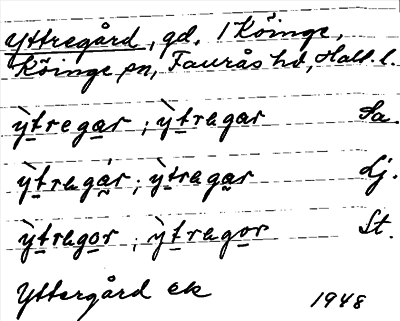 Yttregård, gd, 1 Köinge,
Köinge sn, Faurås hd, Hall. l.
ỳtregar ; ỳtregar Sa.
ỳtregár ; ỳtregar Lj.
ỳtregor ; ỳtregor St.
Yttergård ek 1948